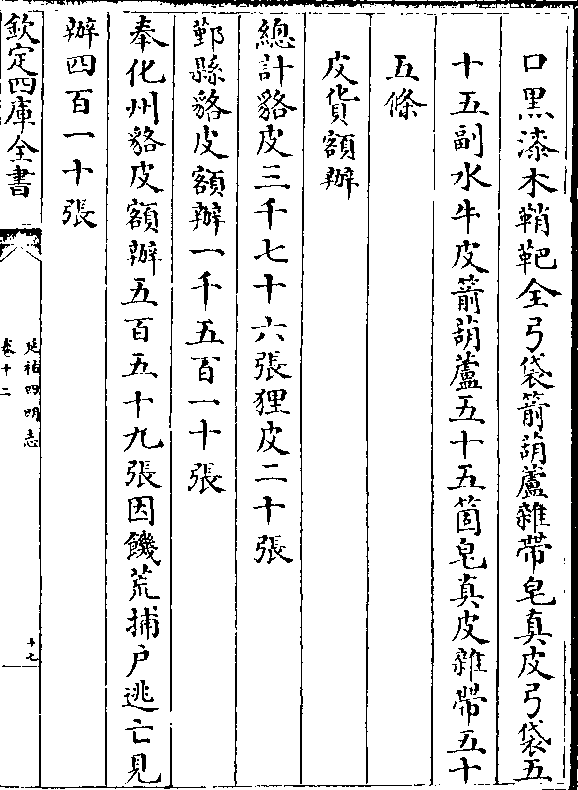 口黒漆木鞘靶全弓袋箭葫蘆雜帶皂真皮弓袋五
十五副水牛皮箭葫蘆五十五箇皂真皮雜帶五十
五條
皮貨額辦
總計貉皮三千七十六張狸皮二十張
鄞縣貉皮額辦一千五百一十張
奉化州貉皮額辦五百五十九張因饑荒捕户逃亡見
辦四百一十張
欽定四庫全書
延祐四明志
卷十二
十七